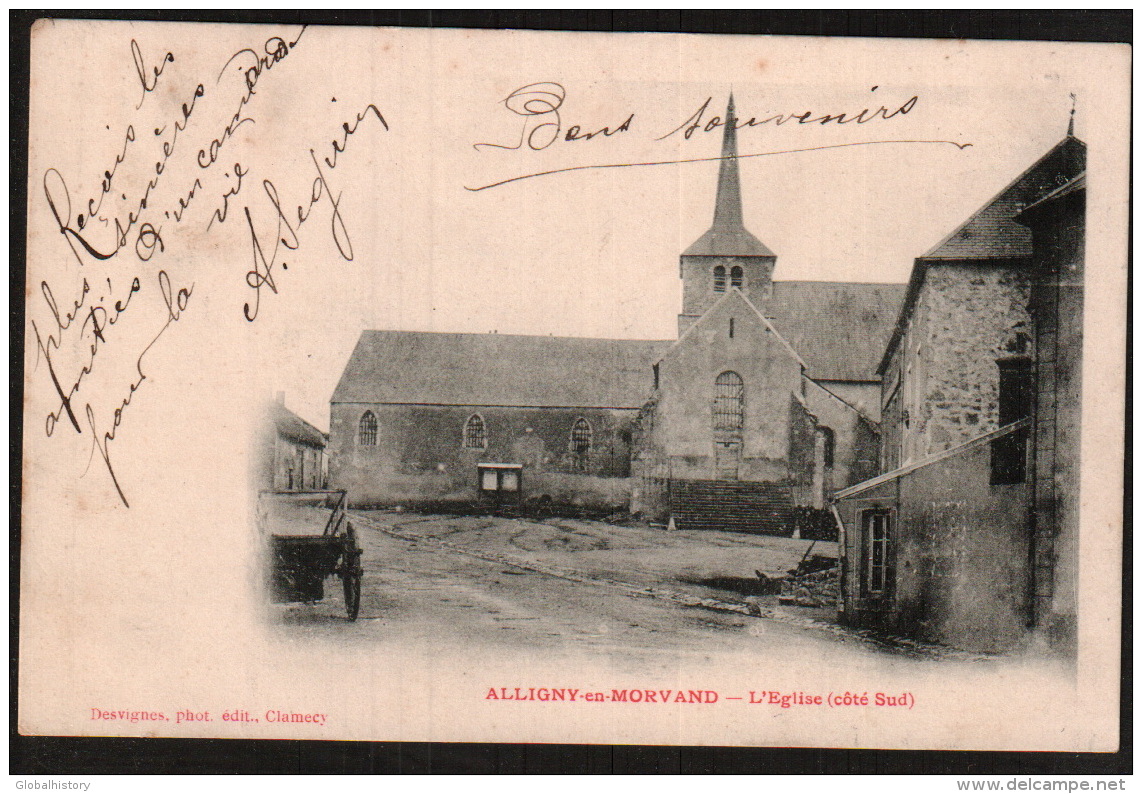 Recois les
plus sincères
amitiés d'un camarade
pour la vie
A. Seguir
Bons souvenirs
ALLIGNY-en-MORVAND — L'Eglise (côté Sud)
Desvignes, phot. édit., Clamecy
Globalhistory
www.delcampe.net